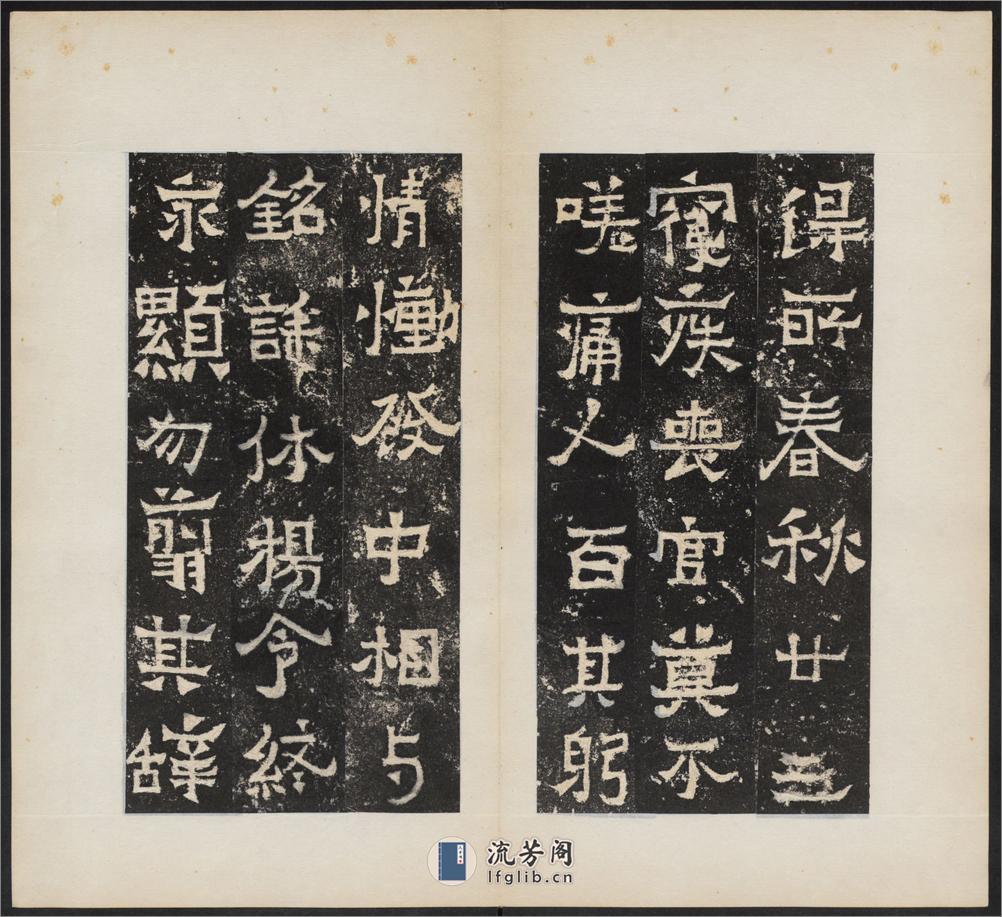 得所春秋廿三
寢疾喪官莫不
嗟痛人百其躬
情慟發中相与
銘誄休揚令終
永顯勿翦其辭
流芳阁
lfglib.cn